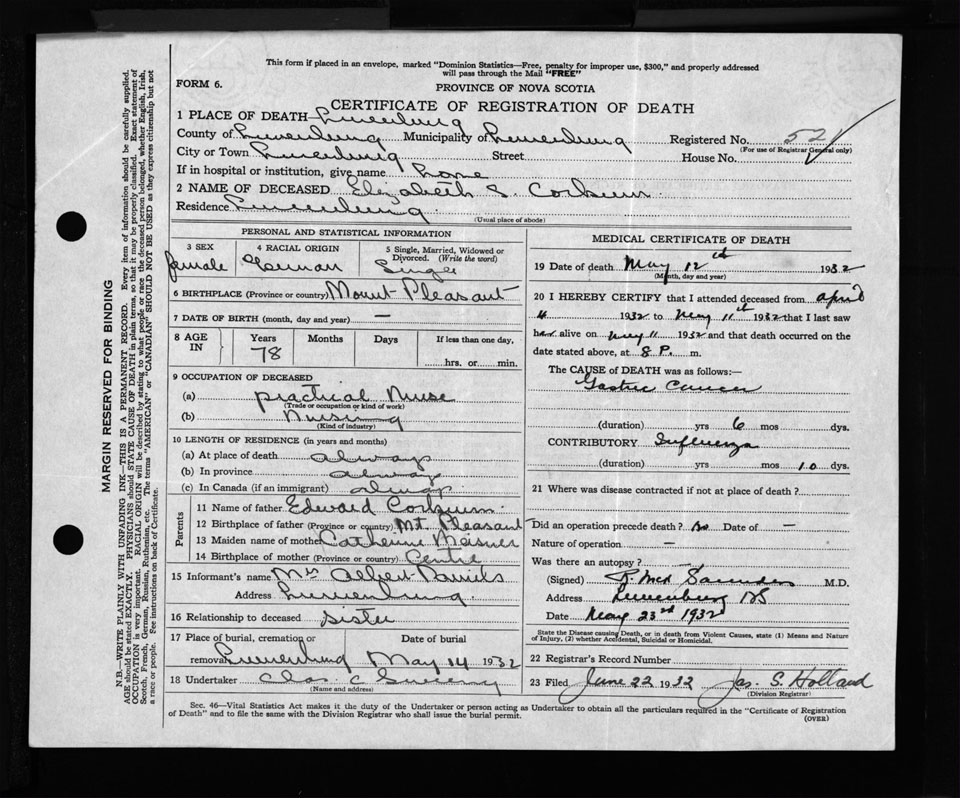 This form if placed in an envelope, marked "Dominion Statistics—Free, penalty for improper use, $300," and properly addressed
will pass through the Mail "FREE"
FORM 6.
PROVINCE OF NOVA SCOTIA
CERTIFICATE OF REGISTRATION OF DEATH
1 PLACE OF DEATH— Lunenburg
County of Lunenburg Municipality of Lunenburg Registered No. 52
(For use of Registrar General only)
City or Town Lunenburg Street House No.
If in hospital or institution, give name home
2 NAME OF DECEASED Elizabeth S. Corkum
Residence Lunenburg
(Usual place of abode)
PERSONAL AND STATISTICAL INFORMATION
3 SEX 4 RACIAL ORIGIN 5 Single, Married, Widowed or
Divorced. (Write the word)
female German Single
6 BIRTHPLACE (Province or country) Mount Pleasant
7 DATE OF BIRTH (month, day and year) —
8 AGE IN Years Months Days If less than one day,
78 hrs. or min.
9 OCCUPATION OF DECEASED
(a) practical Nurse
(Trade or occupation or kind of work)
(b) Nursing
(Kind of industry)
10 LENGTH OF RESIDENCE (in years and months)
(a) At place of death always
(b) In province always
(c) In Canada (if an immigrant) always
Parents
11 Name of father Edward Corkum
12 Birthplace of father (Province or country) Mt. Pleasant
13 Maiden name of mother Catherine Meisner
14 Birthplace of mother (Province or country) Centre
15 Informant's name Mrs Albert Daniels
Address Lunenburg
16 Relationship to deceased sister
17 Place of burial, cremation or Date of burial
removal Lunenburg May 14 1932
18 Undertaker Chas. C
(Name and address)
MEDICAL CERTIFICATE OF DEATH
19 Date of death May 12th 1932
(Month, day and year)
20 I HEREBY CERTIFY that I attended deceased from april
4 1932 to May 11th 1932 that I last saw
her alive on May 11 1932 and that death occurred on the
date stated above, at 8 P. m.
The CAUSE of DEATH was as follows:—
Gastric Cancer
(duration) yrs 6 mos dys.
CONTRIBUTORY Influenza
(duration) yrs mos 10 dys.
21 Where was disease contracted if not at place of death?
Did an operation precede death? no Date of —
Nature of operation —
Was there an autopsy?
(Signed) R. McK Saunders M.D.
Address Lunenburg NS
Date May 23rd 1932
State the Disease causing Death, or in death from Violent Causes, state (1) Means and Nature
of Injury, (2) whether Accidental, Suicidal or Homicidal.
22 Registrar's Record Number
23 Filed June 22 1932 Jas. S. Holland
(Division Registrar)
Sec. 46—Vital Statistics Act makes it the duty of the Undertaker or person acting as Undertaker to obtain all the particulars required in the "Certificate of Registration
of Death" and to file the same with the Division Registrar who shall issue the burial permit.
(OVER)
MARGIN RESERVED FOR BINDING
N.B.—WRITE PLAINLY WITH UNFADING INK—THIS IS A PERMANENT RECORD. Every item of information should be carefully supplied.
AGE should be stated EXACTLY. PHYSICIANS should STATE CAUSE OF DEATH in plain terms, so that it may be properly classified. Exact statement of
OCCUPATION is very important. RACIAL ORIGIN will be described by stating to what people or race the deceased person belonged, whether English, Irish,
Scotch, French, German, Russian, Ruthenian, etc. The terms "AMERICAN" or "CANADIAN" SHOULD NOT BE USED as they express citizenship but not
a race or people. See instructions on back of Certificate.